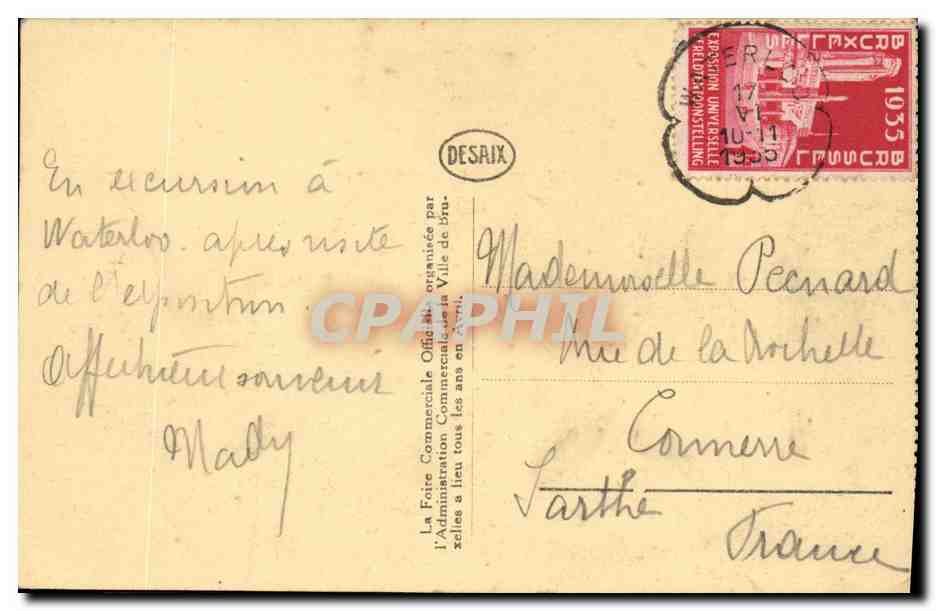 En excursion à
Waterloo. après visite
de l'exposition.
Affectueux souvenir
Mady
DESAIX
La Foire Commerciale Officielle organisée par
l'Administration Commerciale de la Ville de Bru-
xelles a lieu tous les ans en Avril.
1935
BRUXELLES
BRUSSEL
EXPOSITION UNIVERSELLE
WERELDTENTOONSTELLING
WATERLOO
17
VI
10-11
1935
Mademoiselle Pecnard
rue de la Rochelle
Connerré
Sarthe
France
CPAPHIL